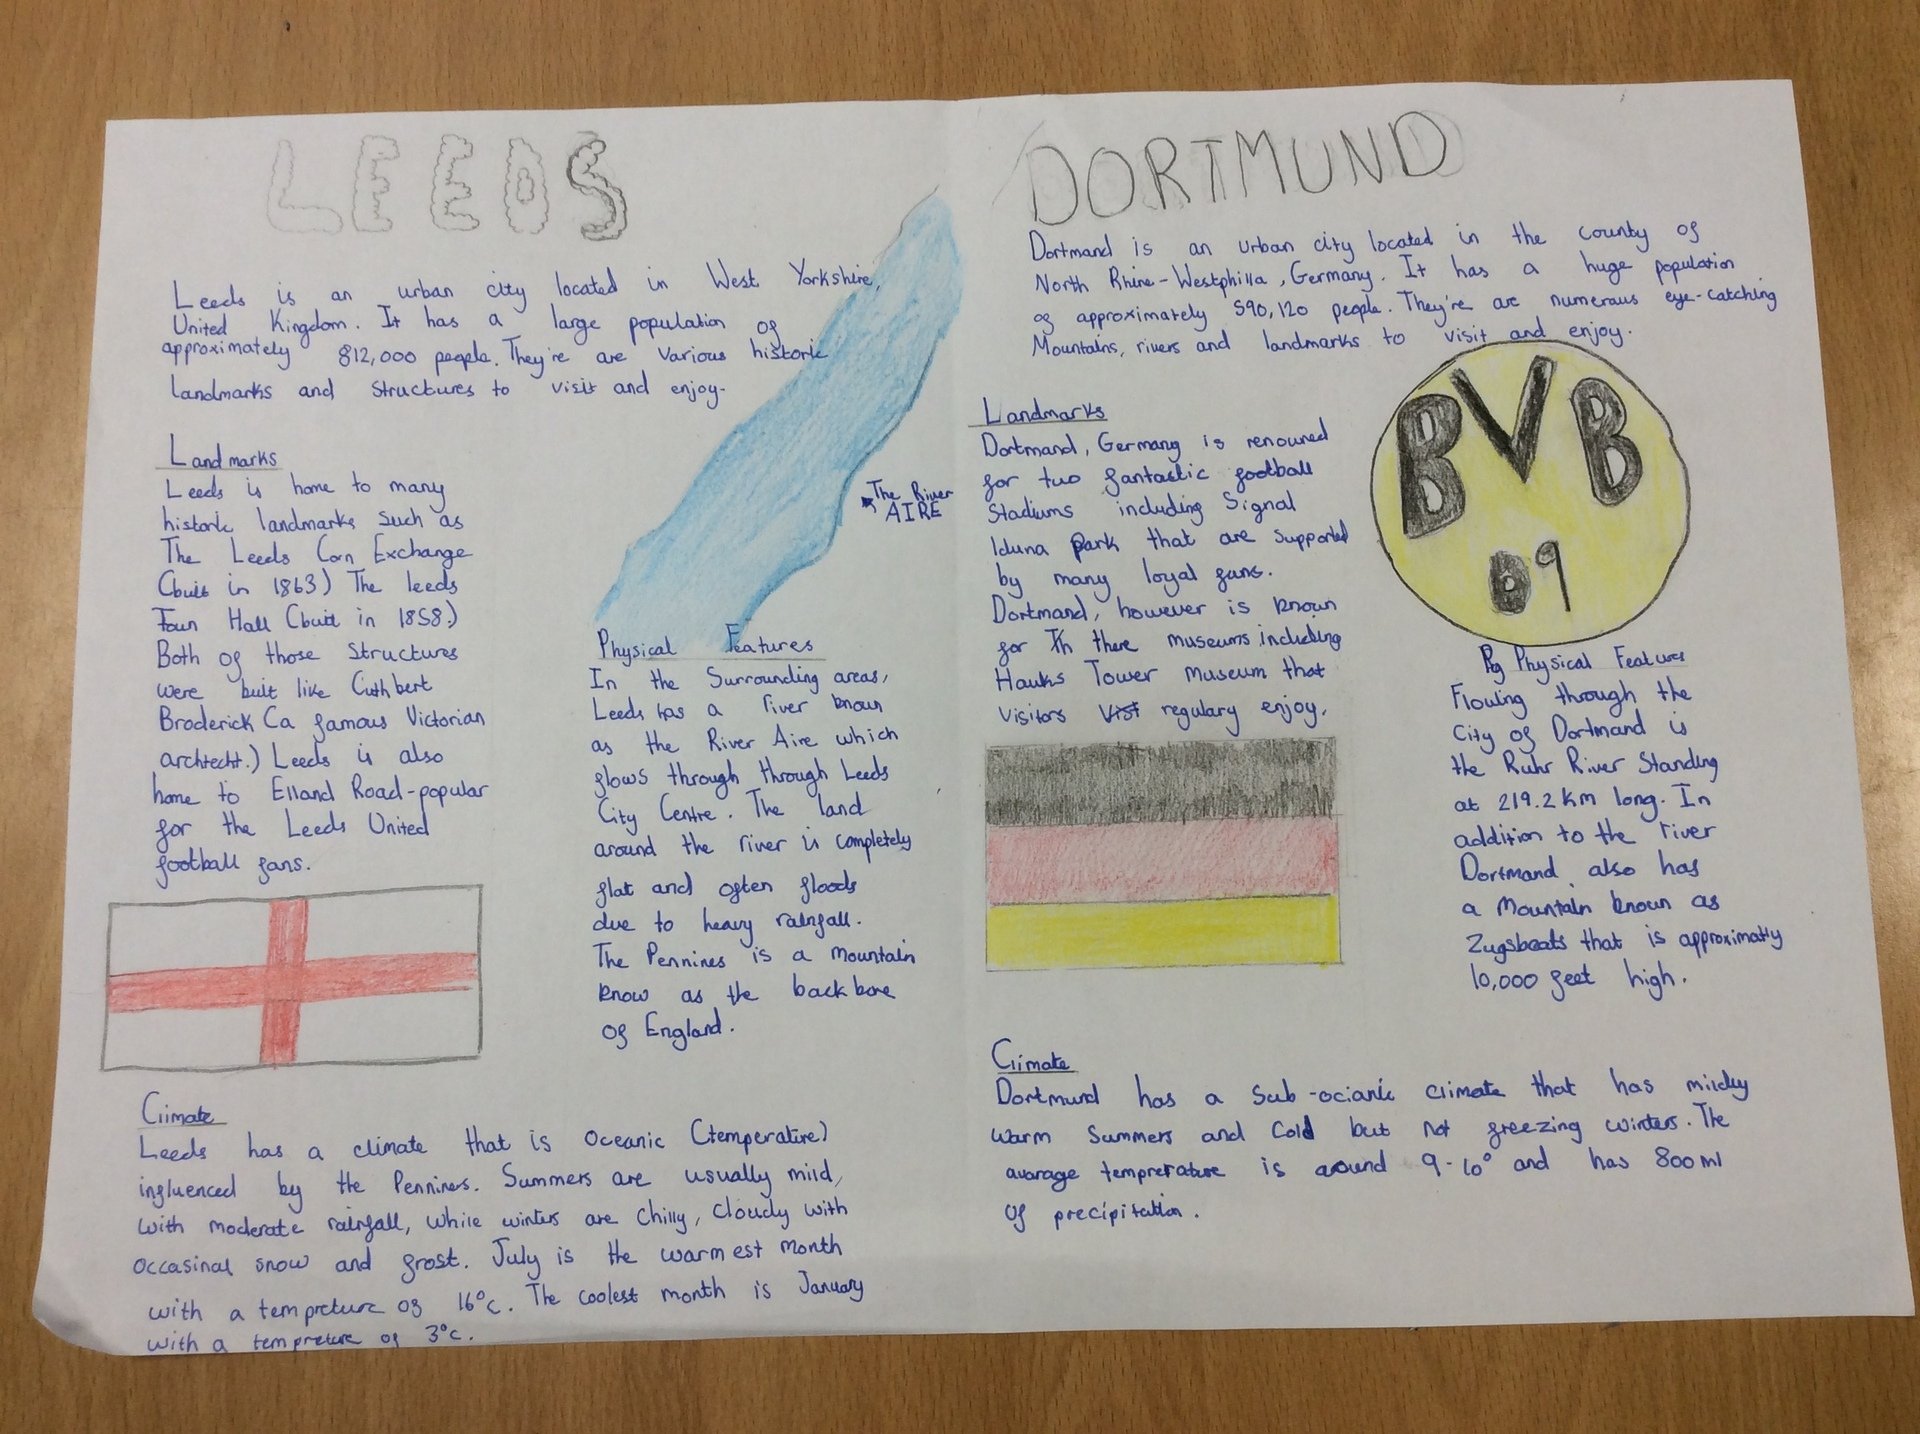 LEEDS
Leeds is an urban city located in West Yorkshire,
United Kingdom. It has a large population of
approximately 812,000 people. They're are various historic
landmarks and structures to visit and enjoy.
Landmarks
Leeds is home to many
historic landmarks such as
The Leeds Corn Exchange
(built in 1863) The leeds
Town Hall (built in 1858.)
Both of those structures
were built like Cuthbert
Broderick (a famous Victorian
archtecht.) Leeds is also
home to Elland Road-popular
for the Leeds United
football fans.
The River
AIRE
Physical Features
In the surrounding areas,
Leeds has a river known
as the River Aire which
flows through through Leeds
City Centre. The land
around the river is completely
flat and often floods
due to heavy rainfall.
The Pennines is a mountain
know as the backbone
of England.
Climate
Leeds has a climate that is oceanic (temperature)
influenced by the Pennines. Summers are usually mild,
with moderate rainfall, while winters are chilly, cloudy with
occasinal snow and frost. July is the warmest month
with a tempreture of 16°c. The coolest month is January
with a tempreture of 3°c.
DORTMUND
Dortmand is an urban city located in the county of
North Rhine-Westphilla, Germany. It has a huge population
of approximately 590,120 people. They're are numeraus eye-catching
Mountains, rivers and landmarks to visit and enjoy.
Landmarks
Dortmand, Germany is renouned
for two fantastic football
Stadiums including Signal
Iduna park that are supported
by many loyal fans.
Dortmand, however is known
for Th there museums including
Hauks Tower museum that
visitors vist regulary enjoy.
BVB
09
Pg Physical Features
Flowing through the
City of Dortmand is
the Ruhr River Standing
at 219.2 km long. In
addition to the river
Dortmand also has
a Mountain known as
Zugsbeats that is approximatly
10,000 feet high.
Climate
Dortmund has a sub-ocianic climate that has mildly
warm summers and cold but not freezing winters. The
avarage tempretature is around 9-10° and has 800ml
of precipitation.